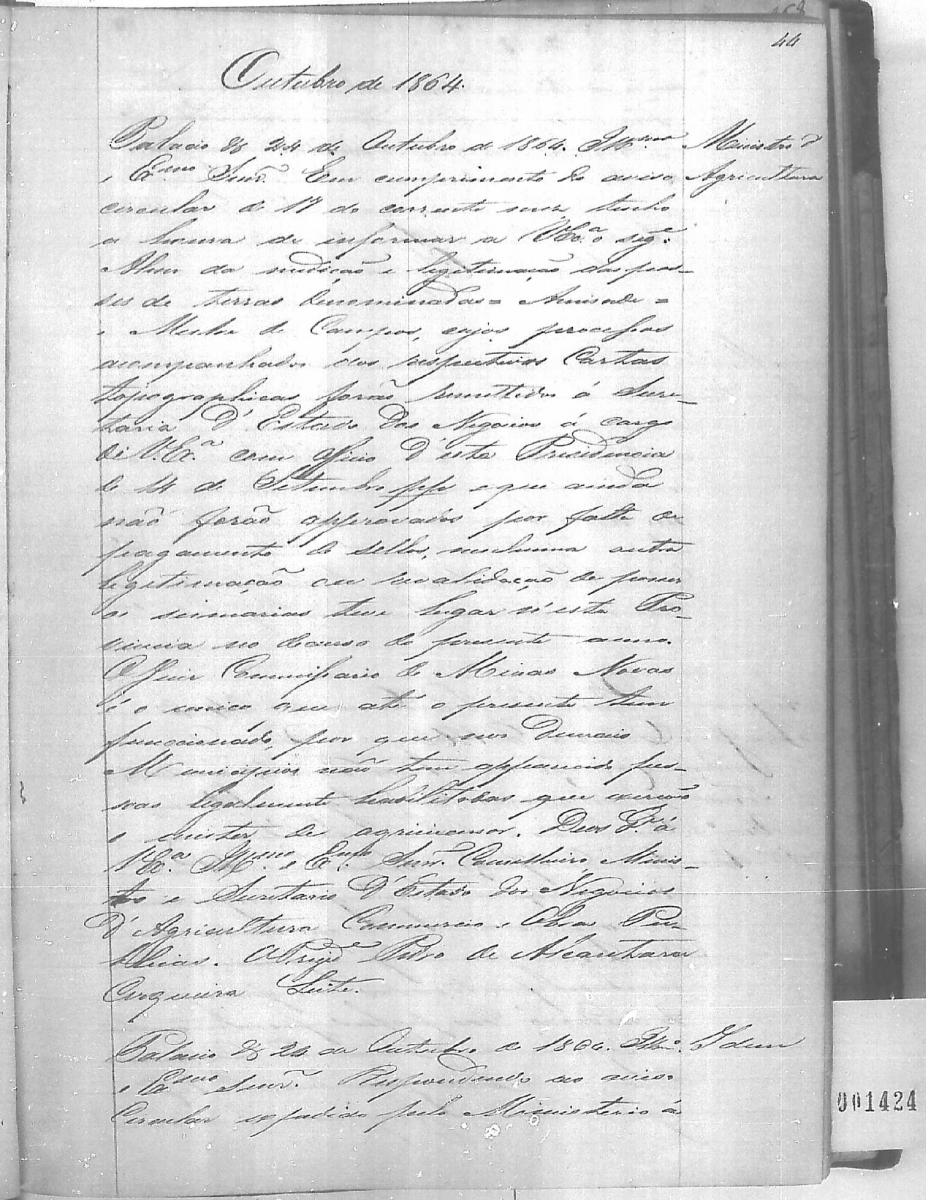 44
Outubro de 1864.
Palacio & 24 de Outubro de 1864. Illmo Ministro d'
e Exmo Senr. Em cumprimento do aviso Agricultura
circular de 17 do corrente mez, tenho
a honra de informar a V.Exa. o segte.
Alem da medição e legitimação das pos-
ses de terras denominadas = Amisade =
e Mucha de Campos, cujos processos
acompanhados dos respectivos Cartas
topographicas forão remettidos á Secre-
taria d'Estado dos Negocios á cargo
de V.Exa. com officio d'esta Presidencia
de 14 de Setembro ppp e que ainda
não forão approvados por falta de
pagamento de sellos, nenhuma outra
legitimação ou revalidação de posses
ou sesmarias teve lugar n'esta Pro-
vincia no decurso do presente anno.
O Juiz Commissario de Minas Novas
é o unico que até o presente tem
funccionado, por que nos demais
Municipios não tem apparecido pes-
soas legalmente habilitadas que exerção
o mister de agrimensor. Deos Ge. á
V.Exa. Illmo. e Exmo. Senr. Conselheiro Minis-
tro e Secretario d'Estado dos Negocios
d'Agricultura Commercio e Obras Pu-
blicas. O Presidte. Pedro de Alcantara
Cerqueira Leite.
Palacio & 24 de Outubro de 1864. Illmo. Idem
e Exmo Senr. Respondendo ao aviso
Circular expedido pelo Ministerio á
001424